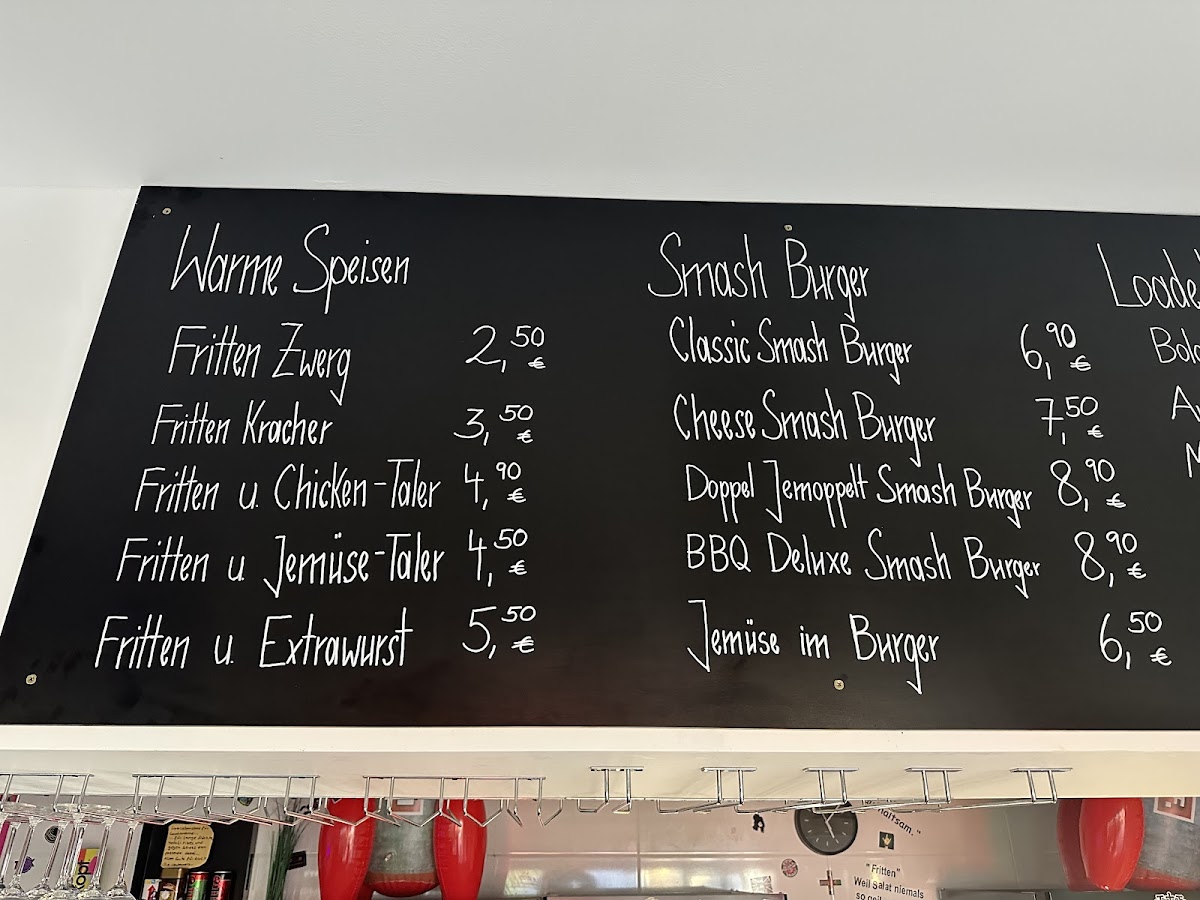 Warme Speisen
Fritten Zwerg 2,50 €
Fritten Kracher 3,50 €
Fritten u. Chicken-Taler 4,90 €
Fritten u. Jemüse-Taler 4,50 €
Fritten u. Extrawurst 5,50 €
Smash Burger
Classic Smash Burger 6,90 €
Cheese Smash Burger 7,50 €
Doppel Jemoppelt Smash Burger 8,90 €
BBQ Deluxe Smash Burger 8,90 €
Jemüse im Burger 6,50 €
"Fritten"
Weil Salat niemals